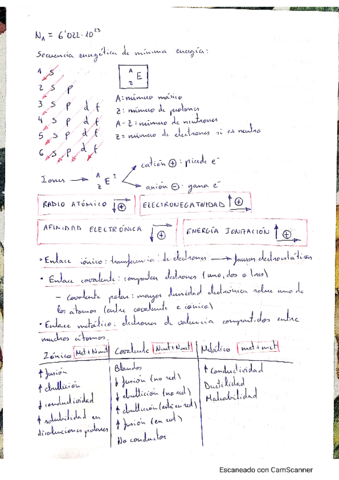 NA = 6'022·10²³
Secuencia energética de mínima energía:
1 s
2 s p
3 s p d f
4 s p d f
5 s p d f
6 s p d f
A
Z E
A: número másico
Z: número de protones
A-Z: número de neutrones
Z = número de electrones si es neutro
Iones → A Z E±
catión ⊕: pierde e⁻
anión ⊖: gana e⁻
RADIO ATÓMICO ↓⊕
ELECTRONEGATIVIDAD ↑⊕
AFINIDAD ELECTRÓNICA ↓⊕
ENERGÍA IONIZACIÓN ↑⊕
• Enlace iónico: transferencia de electrones → fuerzas electrostáticas
• Enlace covalente: comparten electrones (uno, dos o tres)
- Covalente polar: mayor densidad electrónica sobre uno de
los átomos (entre covalente e iónico)
• Enlace metálico: electrones de valencia compartidos entre
muchos átomos.
Iónico Met+Nmet
↑ fusión
↑ ebullición
↓ conductividad
↑ solubilidad en
disoluciones polares
Covalente Nmet+Nmet
Blandos
↓ fusión (no red)
↓ ebullición (no red)
↑ ebullición (en red)
↑ fusión (en red)
No conductor
Metálico met+met
↑ conductividad
Ductilidad
Maleabilidad
Escaneado con CamScanner